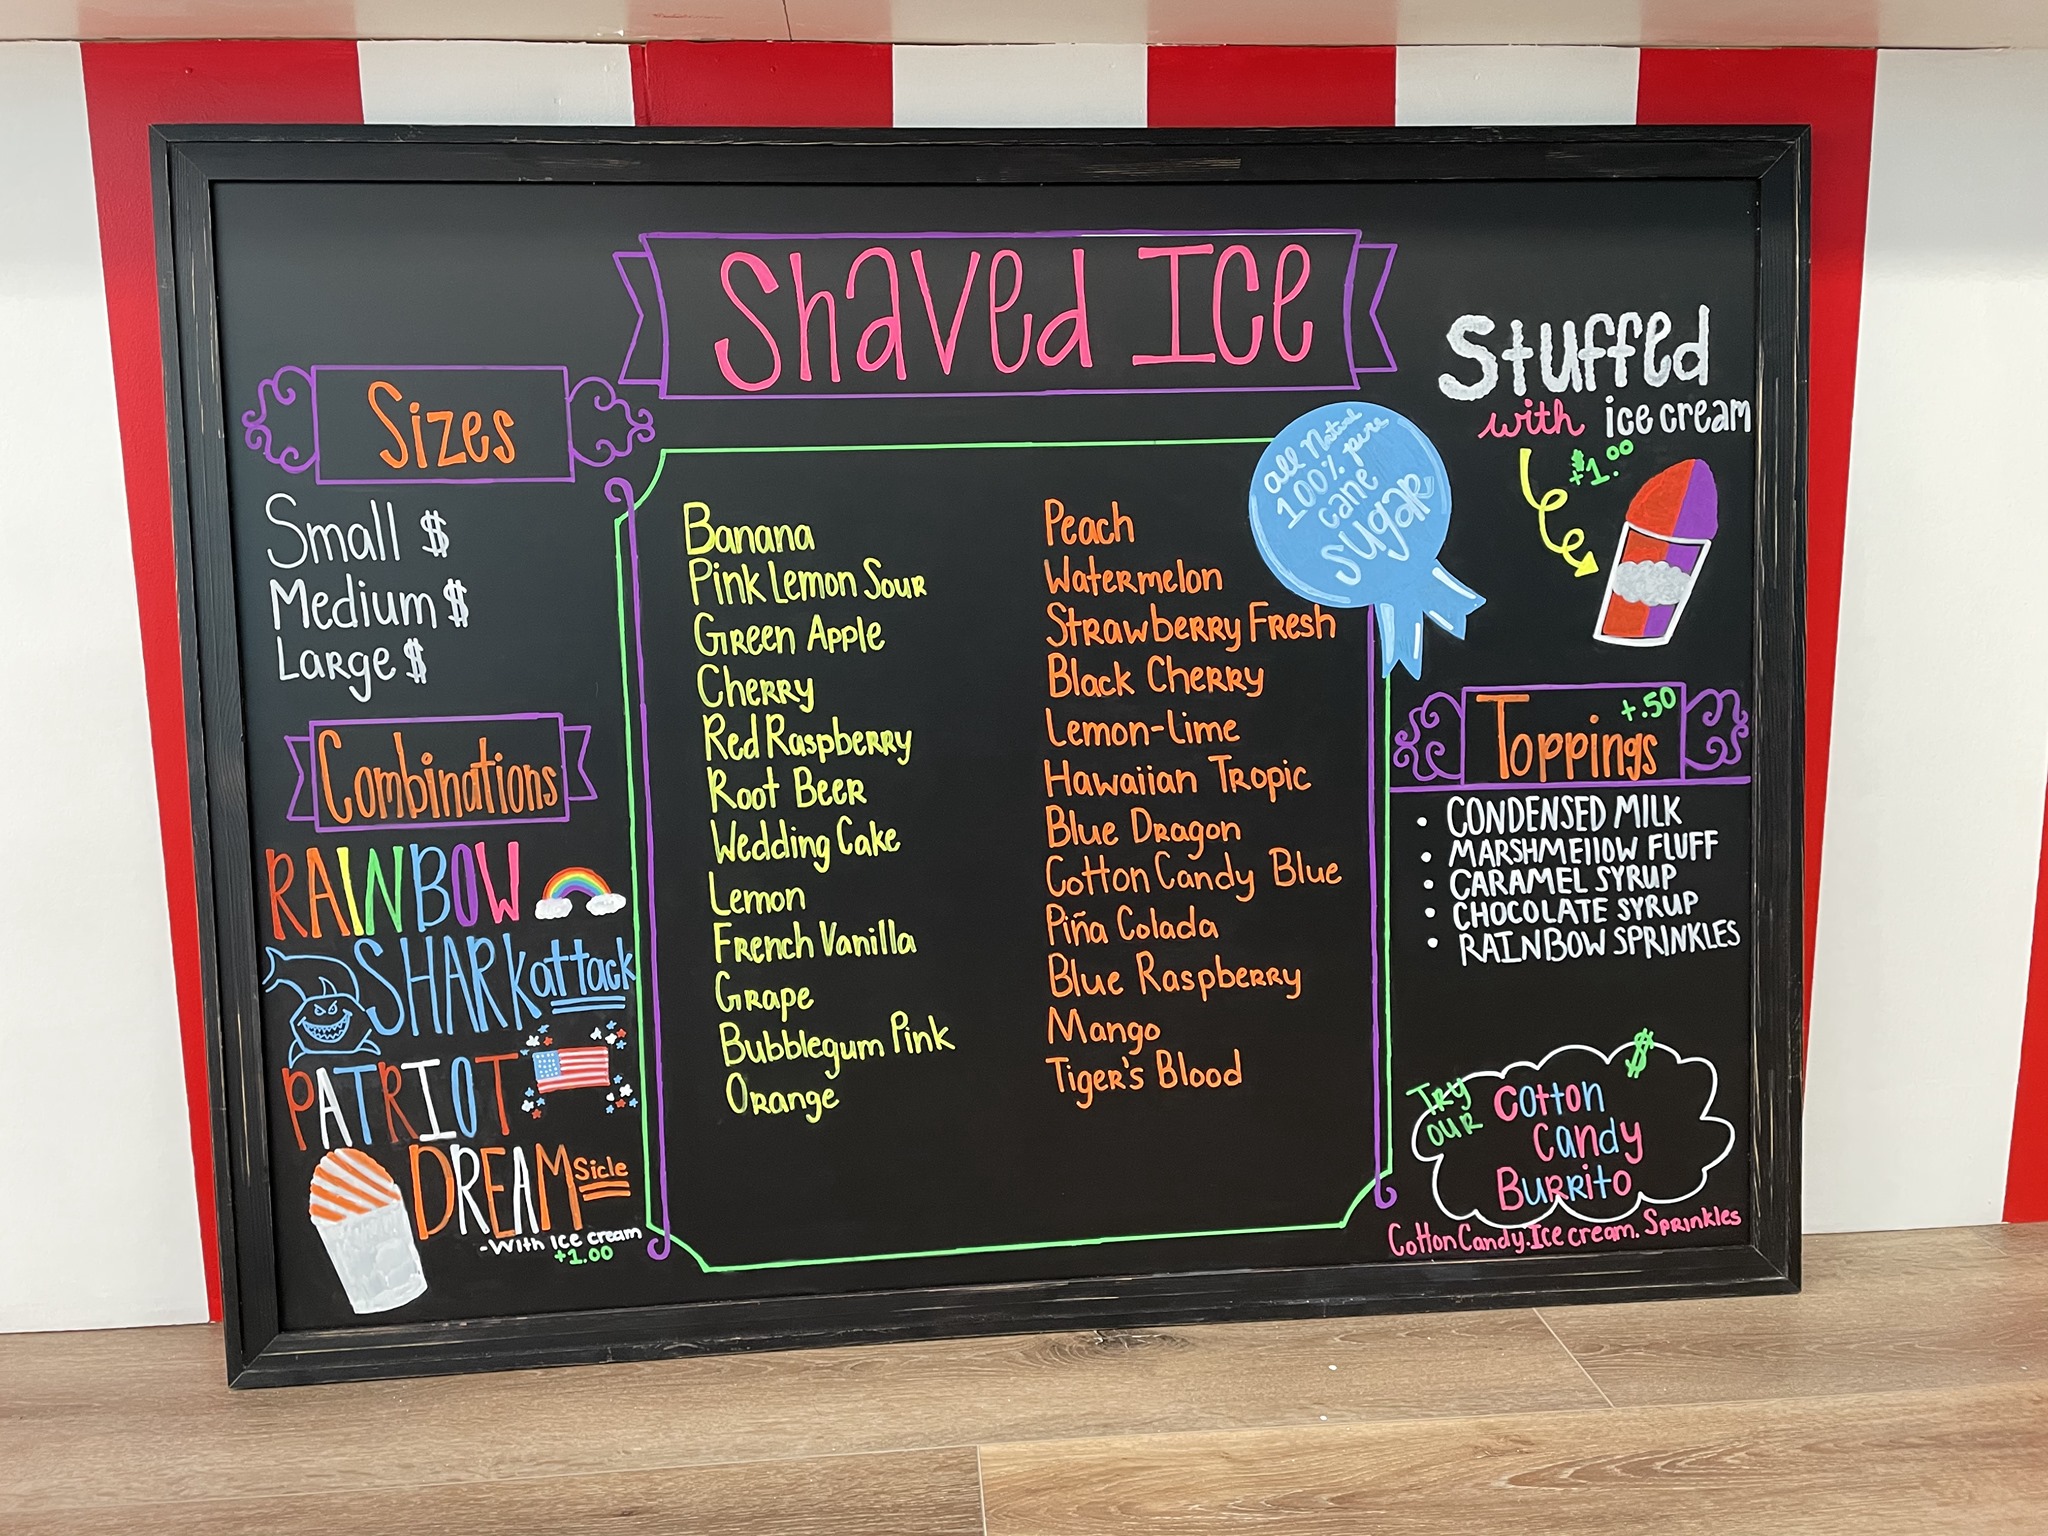 Shaved Ice
Sizes
Small $
Medium $
Large $
Combinations
RAINBOW
SHARK attack
PATRIOT
DREAMSicle
-With ice cream
+1.00
Banana
Pink Lemon Sour
Green Apple
Cherry
Red Raspberry
Root Beer
Wedding Cake
Lemon
French Vanilla
Grape
Bubblegum Pink
Orange
Peach
Watermelon
Strawberry Fresh
Black Cherry
Lemon-Lime
Hawaiian Tropic
Blue Dragon
Cotton Candy Blue
Piña Colada
Blue Raspberry
Mango
Tiger's Blood
all Natural
100% pure
cane
sugar
Stuffed
with ice cream
$+1.00
Toppings +.50
• CONDENSED MILK
• MARSHMEllOW FLUFF
• CARAMEL SYRUP
• CHOCOLATE SYRUP
• RAINBOW SPRINKLES
TRY
OUR
$
Cotton
Candy
Burrito
Cotton Candy. Ice cream. Sprinkles